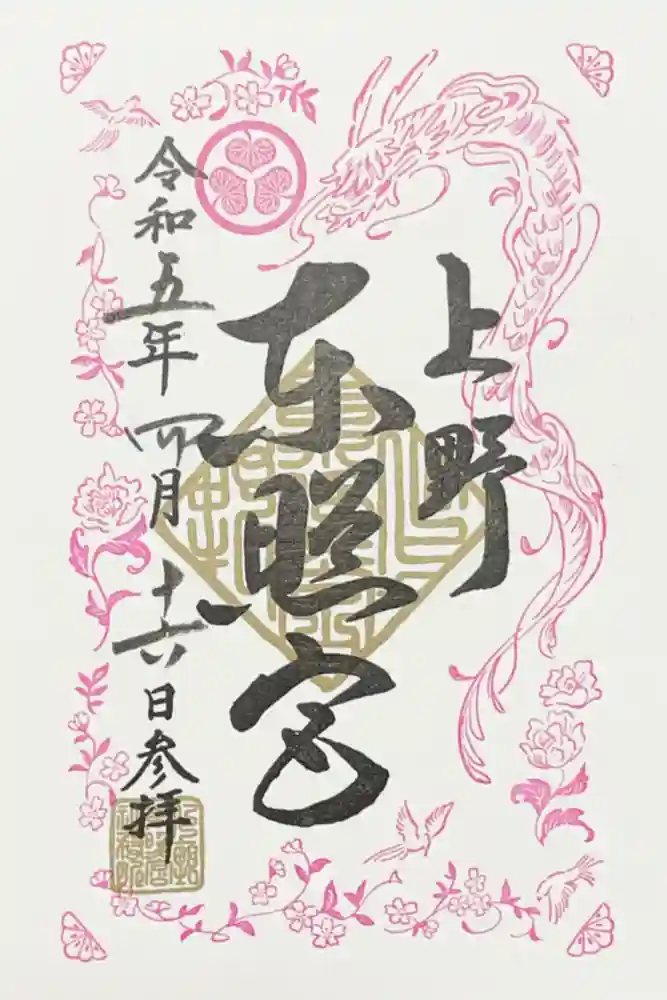 上野
東照宮
令和五年四月十六日参拝